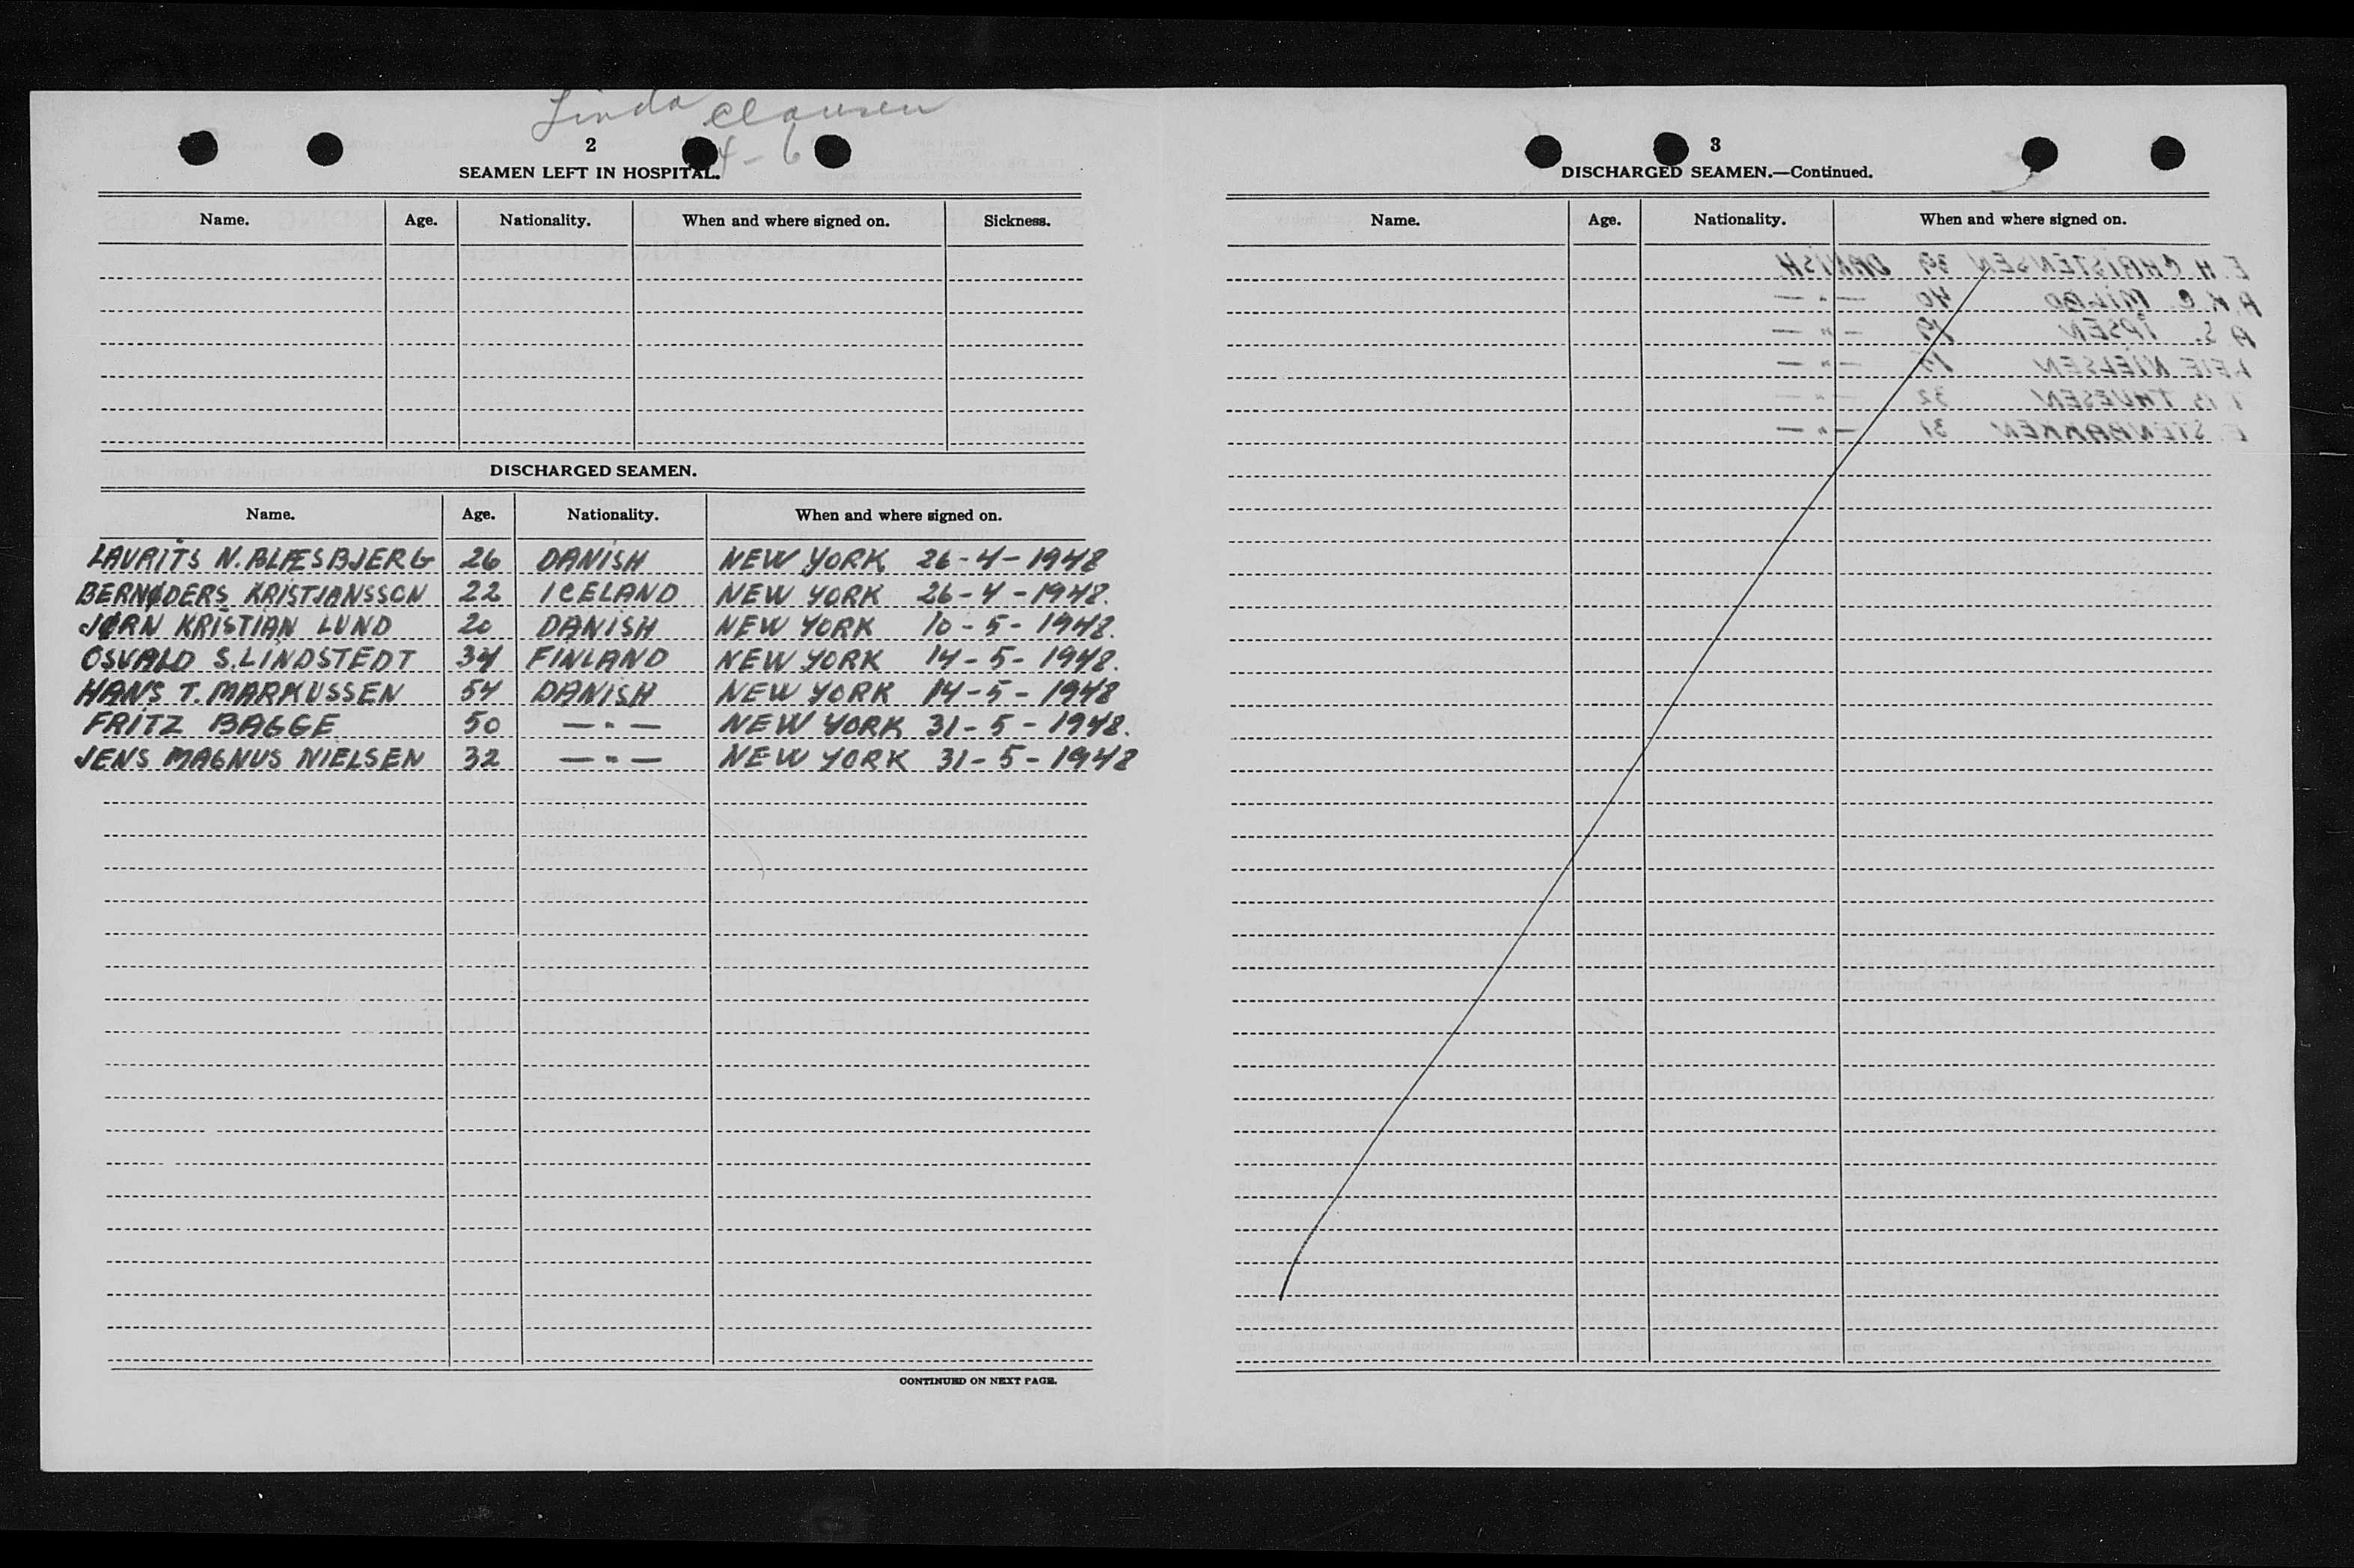 Linda Clausen
4-6
2
SEAMEN LEFT IN HOSPITAL.
Name. Age. Nationality. When and where signed on. Sickness.
DISCHARGED SEAMEN.
Name. Age. Nationality. When and where signed on.
LAURITS N. BLÆSBJERG 26 DANISH NEW YORK 26-4-1948
BERNØDERS KRISTJANSSON 22 ICELAND NEW YORK 26-4-1948.
JØRN KRISTIAN LUND 20 DANISH NEW YORK 10-5-1948.
OSVALD S. LINDSTEDT 34 FINLAND NEW YORK 14-5-1948.
HANS T. MARKUSSEN 54 DANISH NEW YORK 14-5-1948
FRITZ BAGGE 50 — " — NEW YORK 31-5-1948.
JENS MAGNUS NIELSEN 32 — " — NEW YORK 31-5-1948
CONTINUED ON NEXT PAGE.
3
DISCHARGED SEAMEN.—Continued.
Name. Age. Nationality. When and where signed on.
E. H. CHRISTENSEN 39 DANISH
A. K. C. MILBO 40 — " —
A. S. IPSEN 19 — " —
LEIF NIELSEN — " —
THUESEN 32 — " —
E. STENBAKKEN 31 — " —